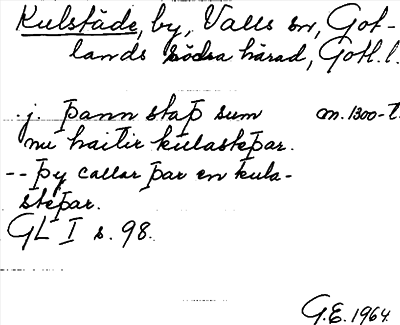 Kulstäde, by, Valls sn, Got-
lands södra härad, Gotl. l.
.j. þann staþ sum m. 1300-t.
nu haitir kulasteþar.
-- þy callar þar en kula-
steþar.
GL I s. 98.
G.E. 1964